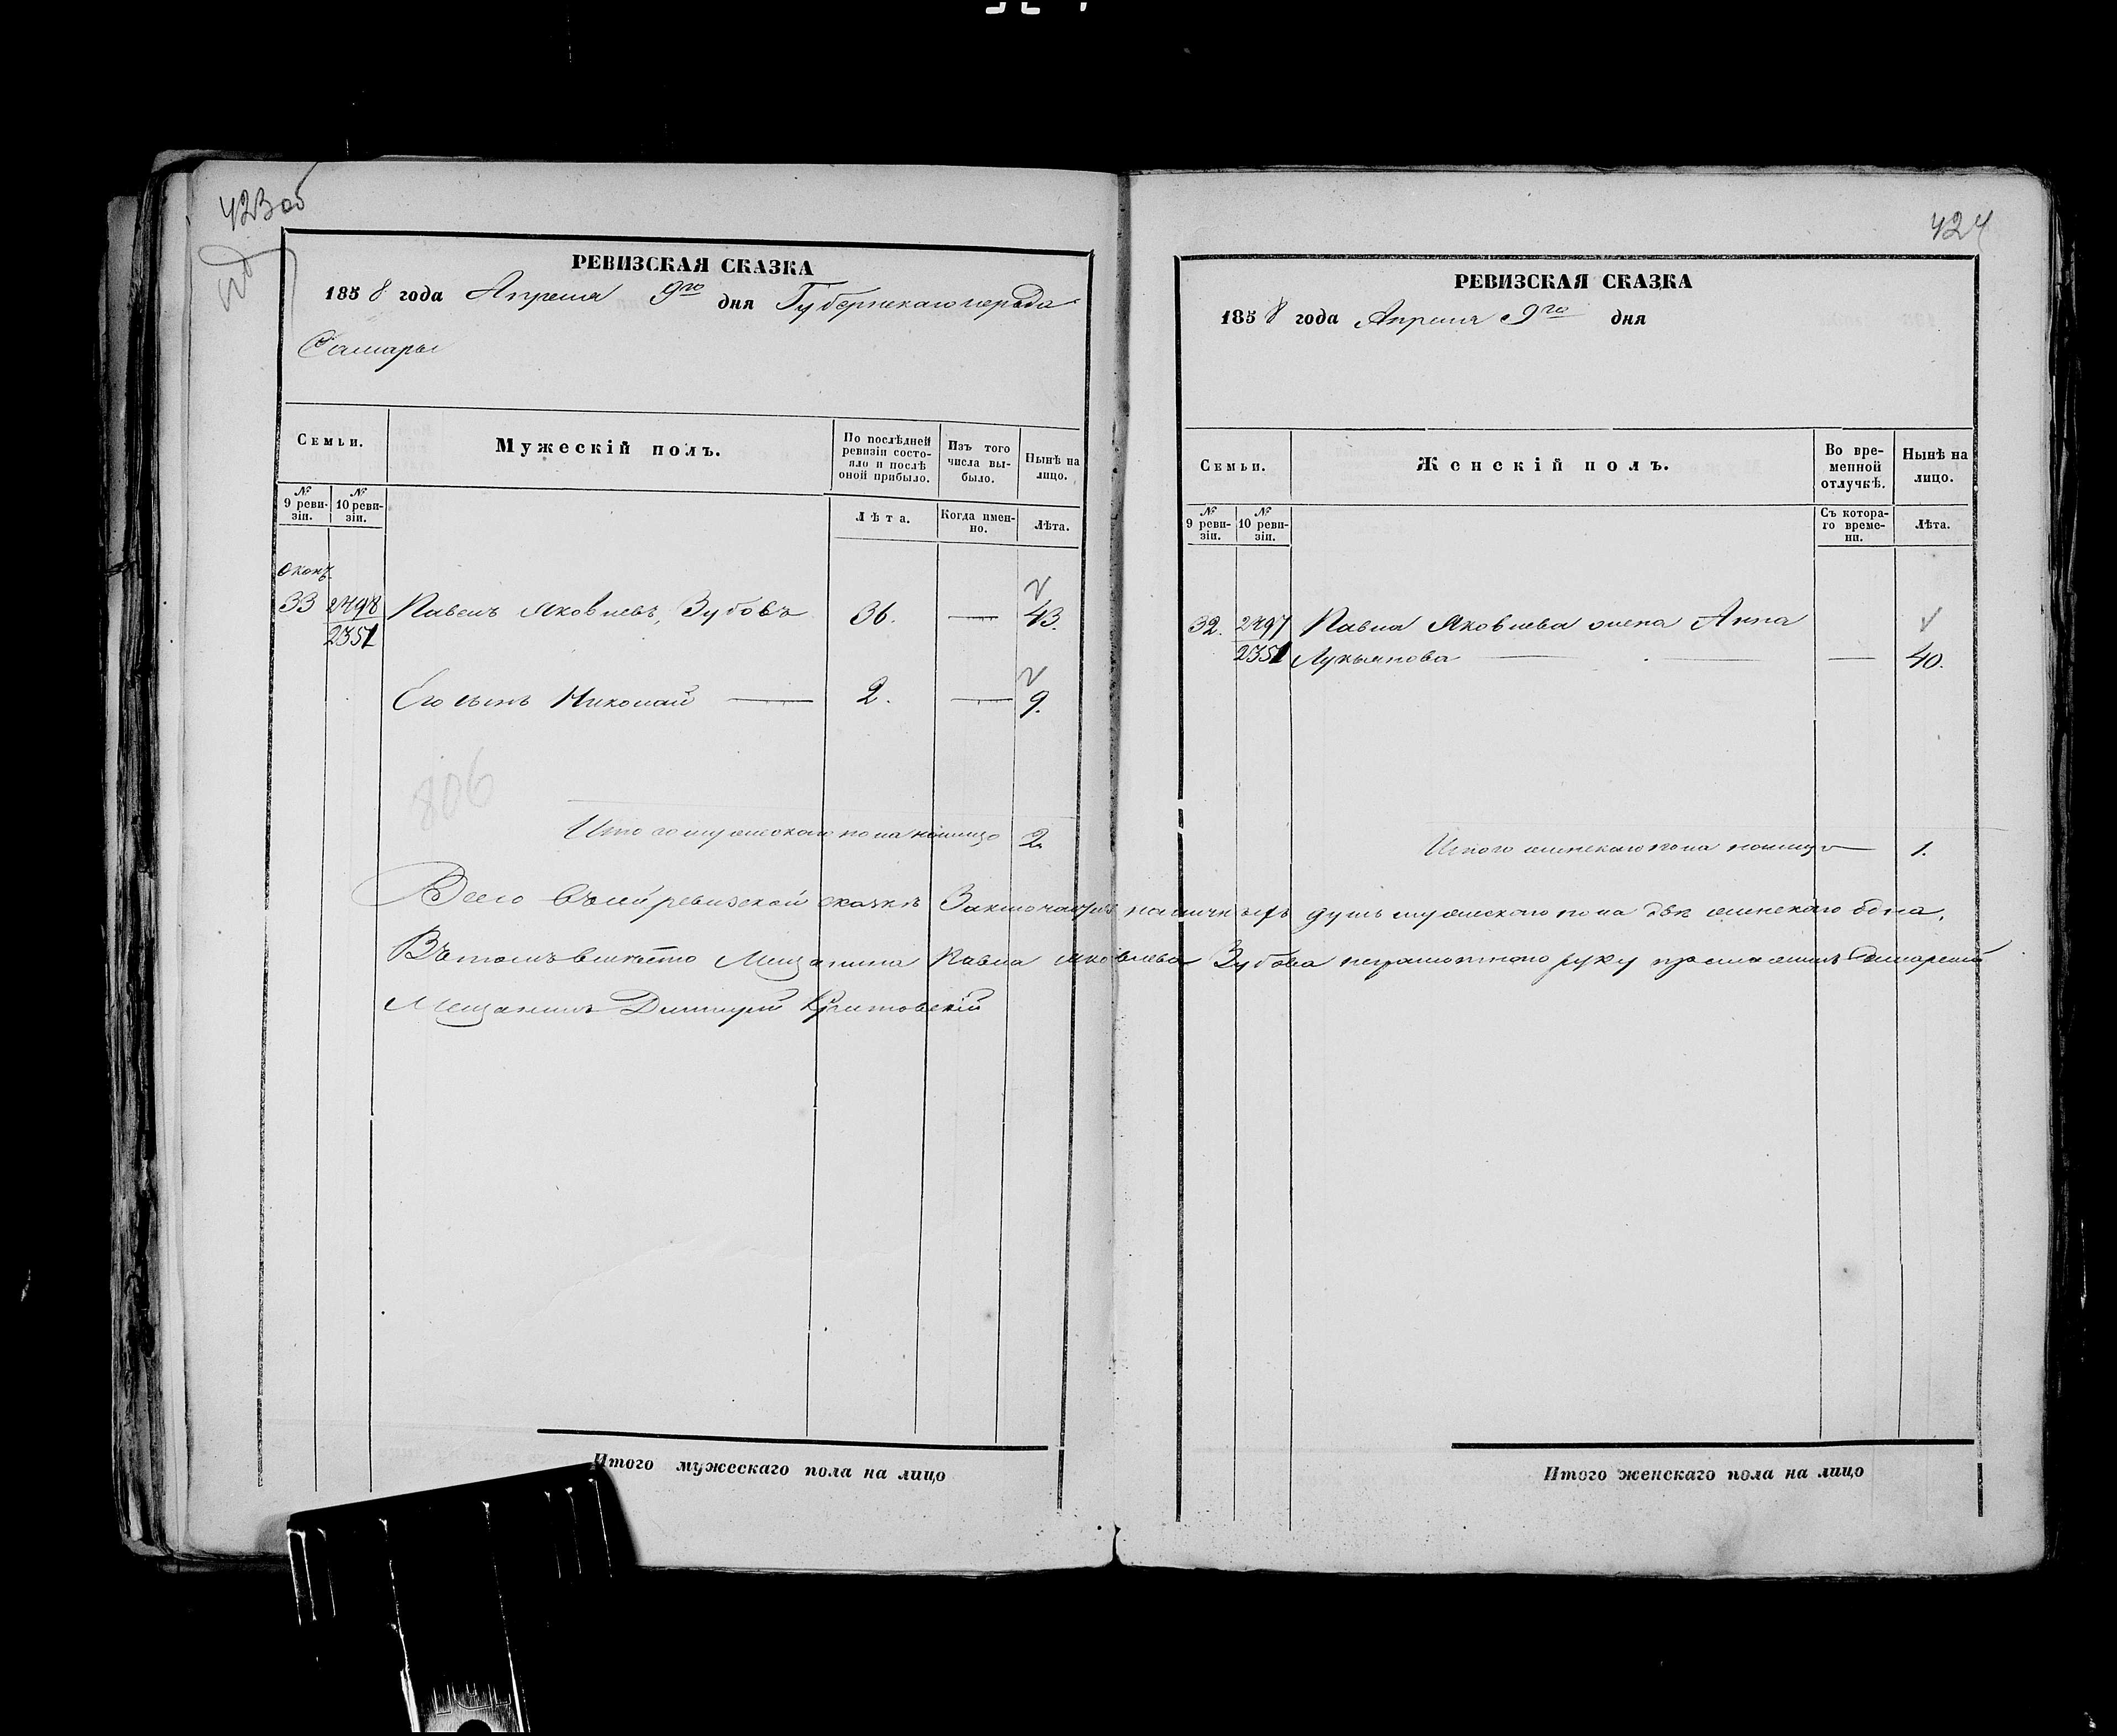 423об
РЕВИЗСКАЯ СКАЗКА
1858 года Апреля 9го дня Губернскаго города
Самары
Семьи.
Мужескій полъ.
По послѣдней ревизіи состояло и послѣ оной прибыло.
Изъ того числа выбыло.
Нынѣ на лицо.
№ 9 ревизіи.
№ 10 ревизіи.
Лѣта.
Когда именно.
Лѣта.
33 2498 Павелъ Яковлевъ, Зубовъ 36. — 43.
2351
Его сынъ Николай — 2. — 9.
806
Итого мужескаго пола налицо 2.
424
РЕВИЗСКАЯ СКАЗКА
1858 года Апреля 9го дня
Семьи.
Женскій полъ.
Во временной отлучкѣ.
Нынѣ на лицо.
№ 9 ревизіи.
№ 10 ревизіи.
Съ котораго времени.
Лѣта.
32. 2497 Павла Яковлева жена Анна
2351 Лукьянова — — 40.
Итого женскаго пола налицо — 1.
Всего въ сей ревизской сказкѣ Заключается наличныхъ душъ мужескаго пола двѣ женскаго одна.
Въ томъ вместо Мещанина Павла Яковлева Зубова неграмотнаго руку приложилъ Самарский
Мещанинъ Дмитрий
Итого мужескаго пола на лицо
Итого женскаго пола на лицо